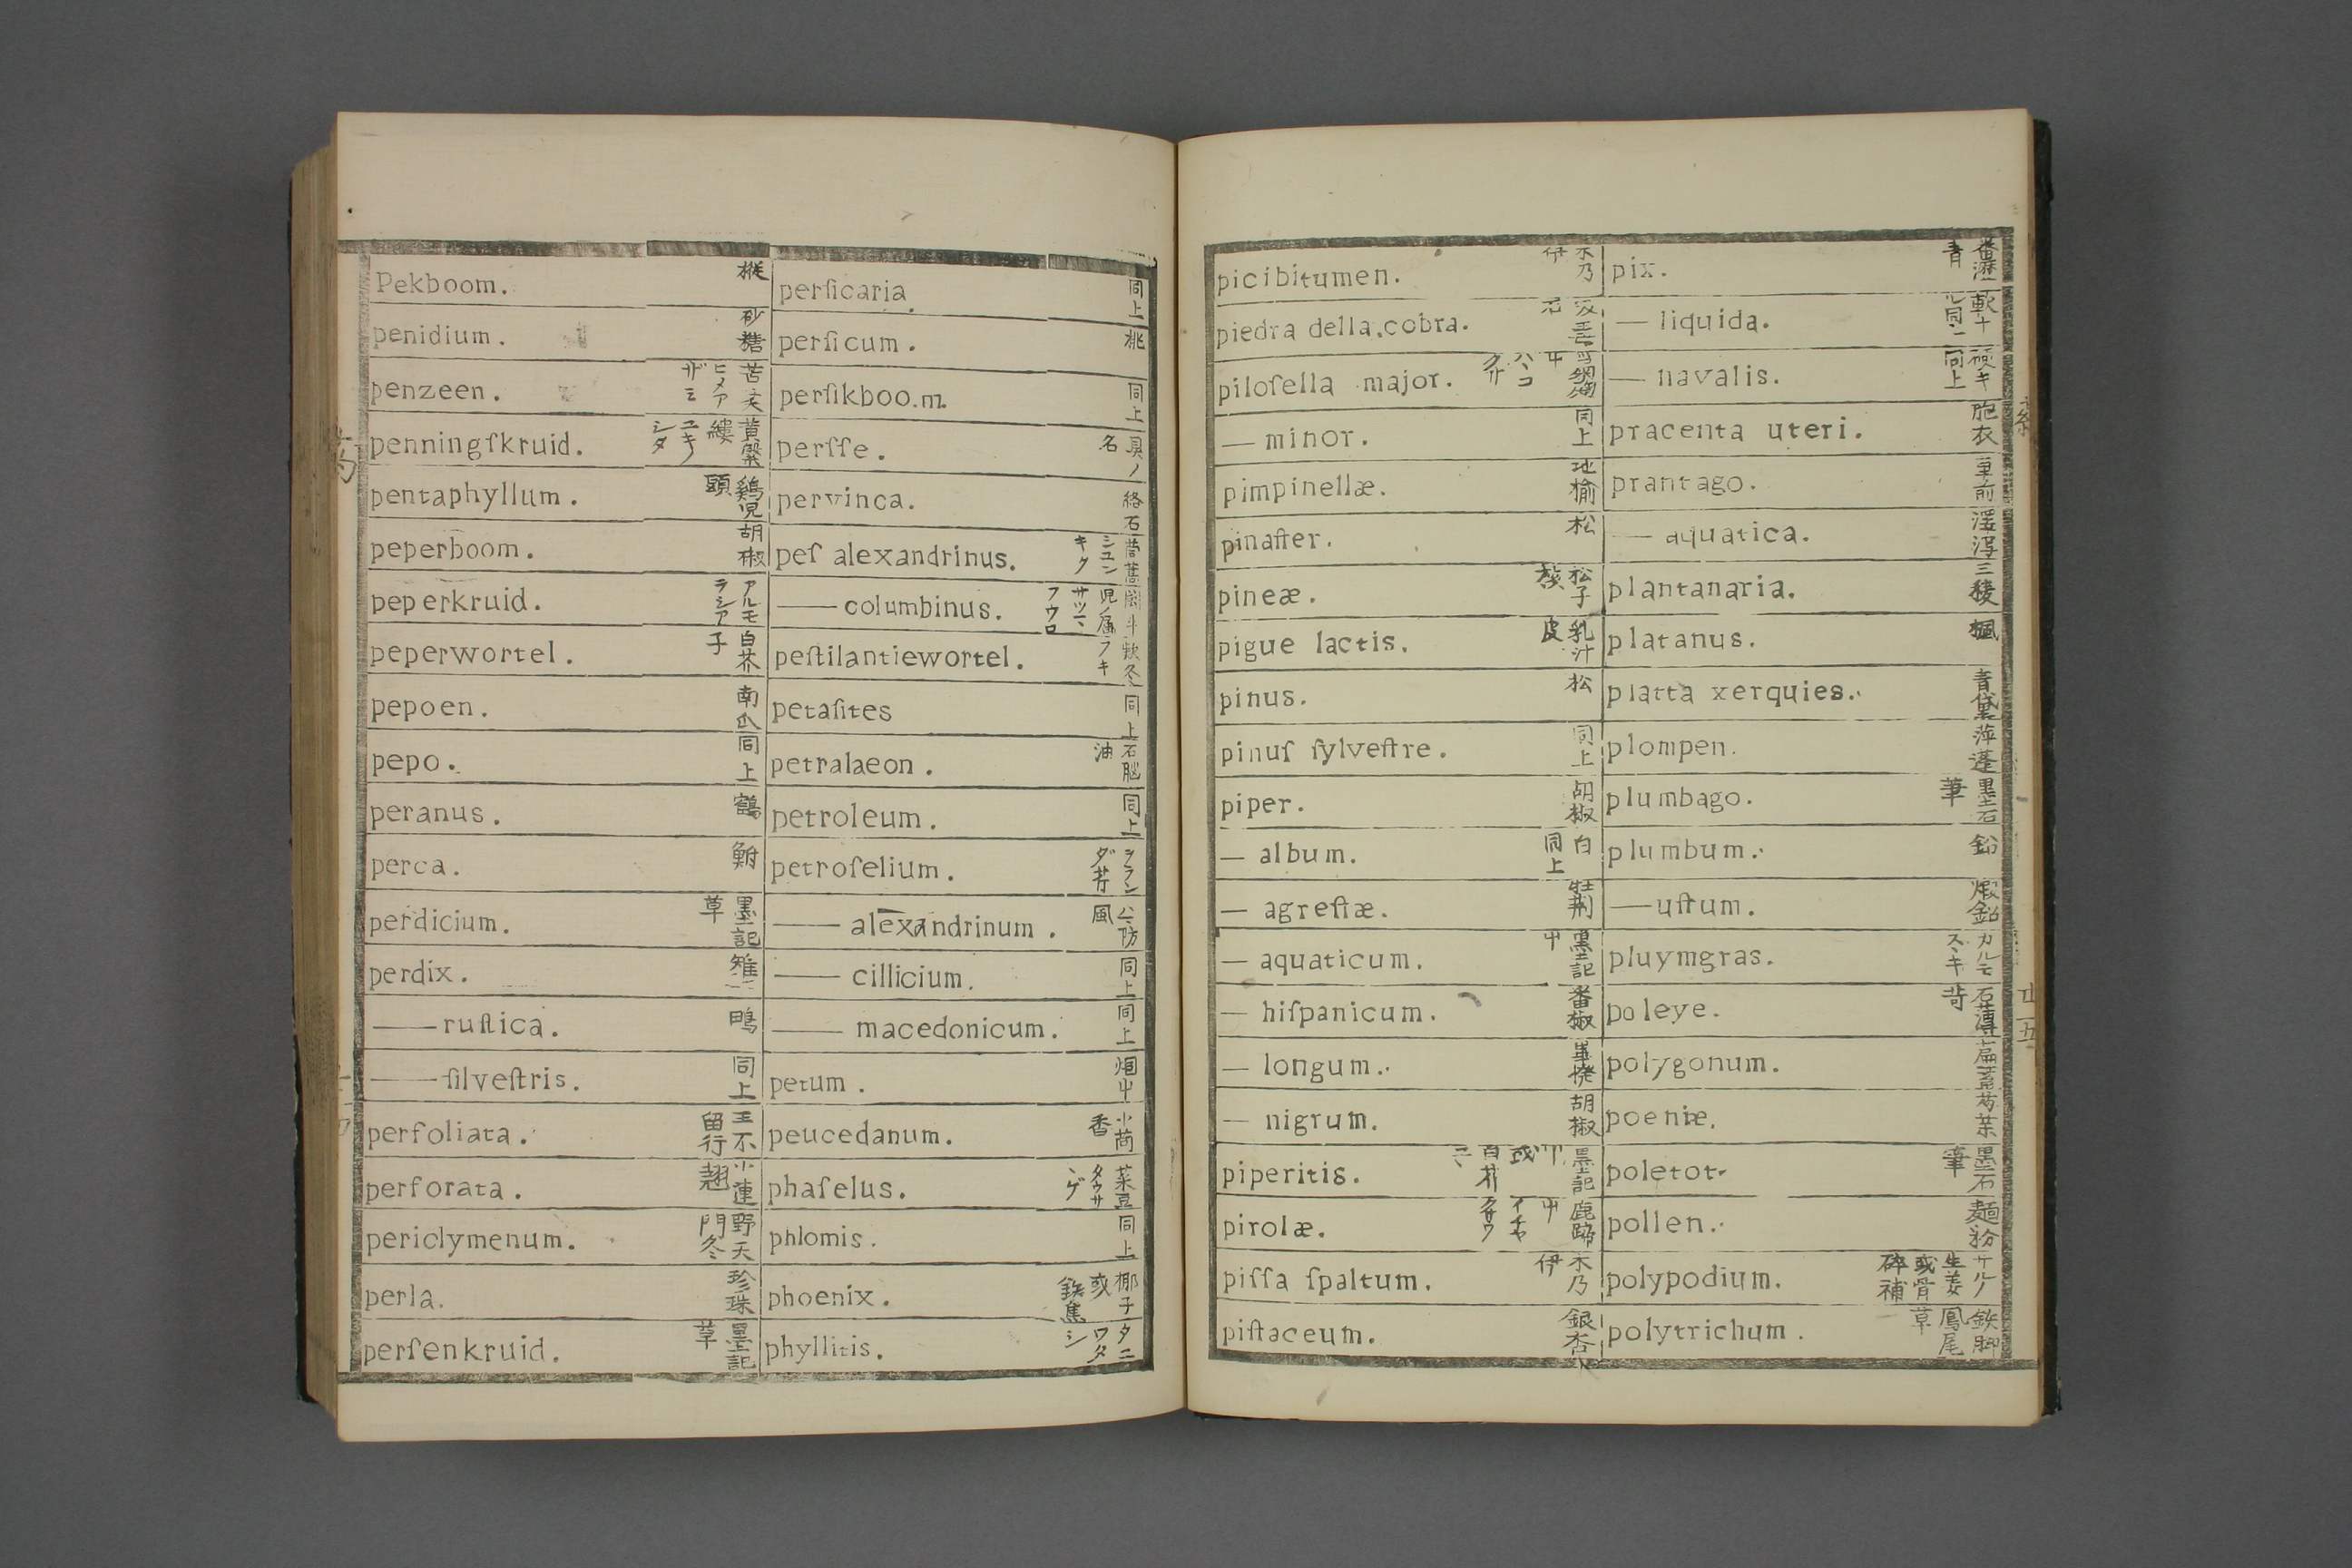 Pekboom. 樅
penidium. 砂糖
penzeen. 苦芺 ヒメアザミ
penningſkruid. 黄鬃縷 ユキノシタ
pentaphyllum. 鷄児頭
peperboom. 胡椒
peperkruid. アルモラシア
peperwortel. 白芥子
pepoen. 南瓜
pepo. 同上
peranus. 鶴
perca. 鮒
perdicium. 墨記草
perdix. 雉
——ruſtica. 鴫
——ſilveſtris. 同上
perfoliata. 王不留行
perforata. 小連翹
periclymenum. 野天門冬
perla. 珍珠
perſenkruid. 墨記草
perſicaria. 同上
perſicum. 桃
perſikboo.m. 同上
perſſe. 具ノ名
pervinca. 絡石
peſ alexandrinus. 茼蒿 シユンキク
——columbinus. サツマフウロ
peſtilantiewortel. 欵冬 フキ
petaſites 同上
petralaeon. 石脳油
petroleum. 同上
petroſelium. ヲランダ芹
——alexandrinum. 防風
——cillicium. 同上
——macedonicum. 同上
petum. 烟屮
peucedanum. 小茴香
phaſelus. 菜豆 タウサヽゲ
phlomis. 同上
phoenix. 椰子或鉄蕉
phyllitis. タニワタシ
picibitumen. 木乃伊
piedra della.cobra. 石
piloſella major. 屮 ハヽコクサ
— minor. 同上
pimpinellæ. 地榆
pinaſter. 松
pineæ. 松子核
pigue lactis. 乳汁皮
pinus. 松
pinuſ ſylveſtre. 同上
piper. 胡椒
— album. 白同上
— agreſtæ. 牡荆
— aquaticum. 墨記屮
— hiſpanicum. 番椒
— longum. 蓽撥
— nigrum. 胡椒
piperitis. 墨記屮或白芥
pirolæ. 鹿蹄屮 イチヤクサウ
piſſa ſpaltum. 木乃伊
piſtaceum. 銀杏
pix. 番瀝青
— liquida. 軟
— navalis. 硬キ同上
pracenta uteri. 胞衣
prantago. 車前
— aquatica. 澤瀉
plantanaria. 三稜
platanus. 楓
platta xerquies. 青黛
plompen. 萍蓬
plumbago. 墨石筆
plumbum. 鉛
——uſtum. 煆鉛
pluymgras. カルモスヽキ
poleye. 石薄荷
polygonum. 萹蓄
poeniæ. 芍薬
poletot. 墨石筆
pollen. 麺粉
polypodium. サルノ生姜或骨碎補
polytrichum. 鉄脚鳳尾草